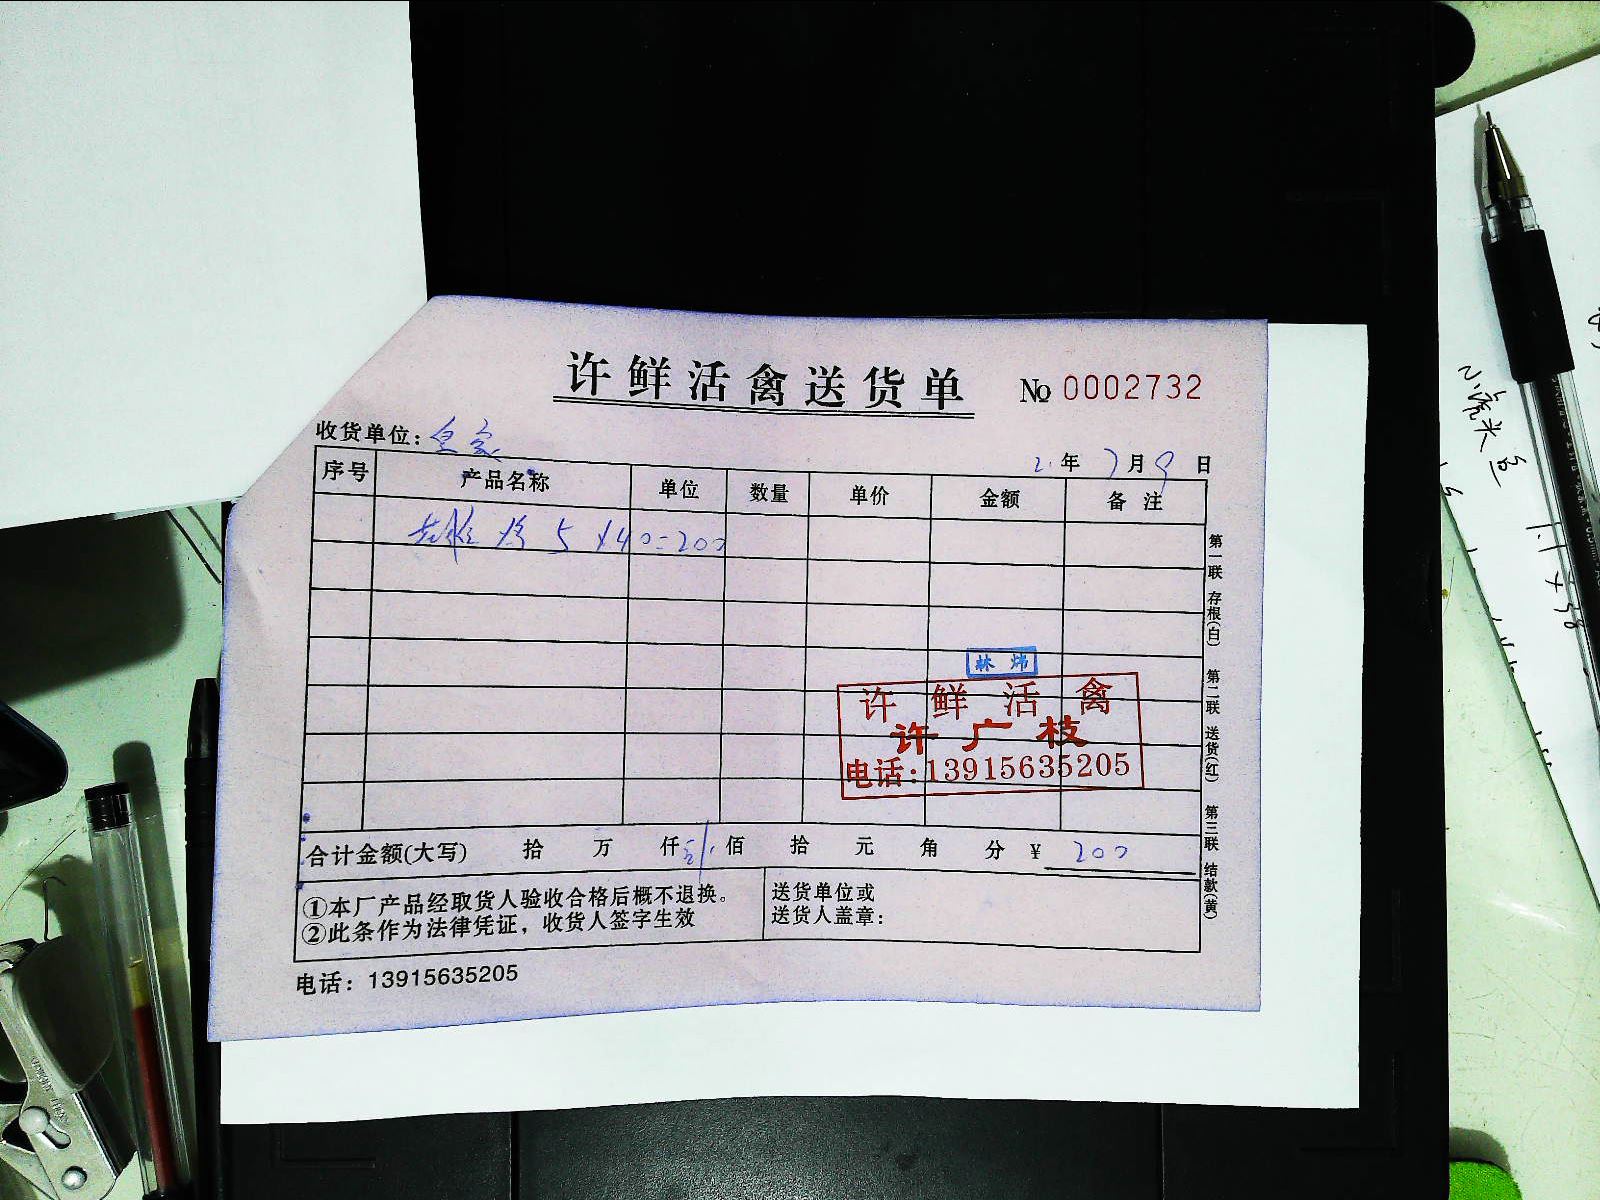 许鲜活禽送货单 № 0002732
收货单位：皇家
21年7月9日
序号 产品名称 单位 数量 单价 金额 备注
5×40=200
林炜
许鲜活禽
许广枝
电话:13915635205
合计金额(大写) 拾 万 仟 佰 拾 元 角 分 ¥ 200
①本厂产品经取货人验收合格后概不退换。
②此条作为法律凭证，收货人签字生效
送货单位或
送货人盖章:
电话：13915635205
第一联 存根(白) 第二联 送货(红) 第三联 结款(黄)